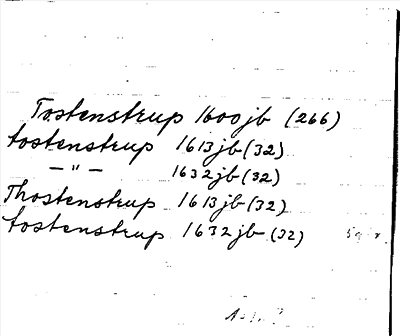 Tostenstrup 1600 jb (266)
tostenstrup 1613 jb (32)
— " — 1632 jb (32)
Thostenstrup 1613 jb (32)
tostenstrup 1632 jb (32)